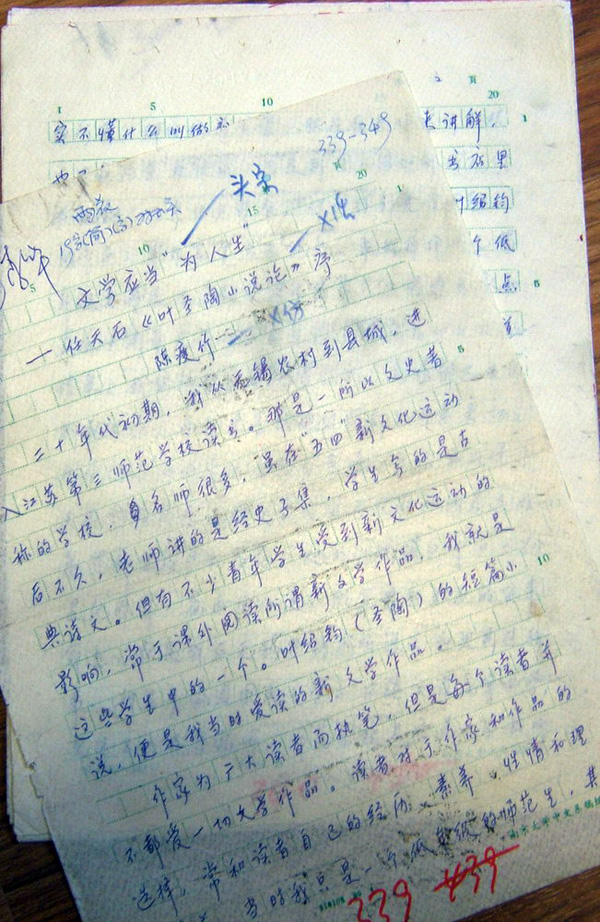 1 5 10 20
实不懂什么叫做小
去讲解,
也
书店里
叶绍钧
个低
点
339-349
头宋
15 20 1
10
5
文学应当“为人生”
—任天石《叶圣陶小说论》序
陈瘦竹
二十年代初期,我从无锡农村到县城,进
入江苏第三师范学校读书。那是一所以文史著
称的学校,名师很多,虽在“五四”新文化运动
后不久,老师讲的是经史子集,学生写的是古
典诗文。但有不少青年学生受到新文化运动的
影响,常于课外阅读所谓新文学作品,我就是
这些学生中的一个。叶绍钧(圣陶)的短篇小
说,便是我当时爱读的新文学作品。
作家为广大读者而执笔,但是每个读者并
不都爱一切文学作品。读者对于作家和作品的
选择,常和读者自己的经历、素养、性情和理
当时的我只是一个低年级的师范生,其
339 439